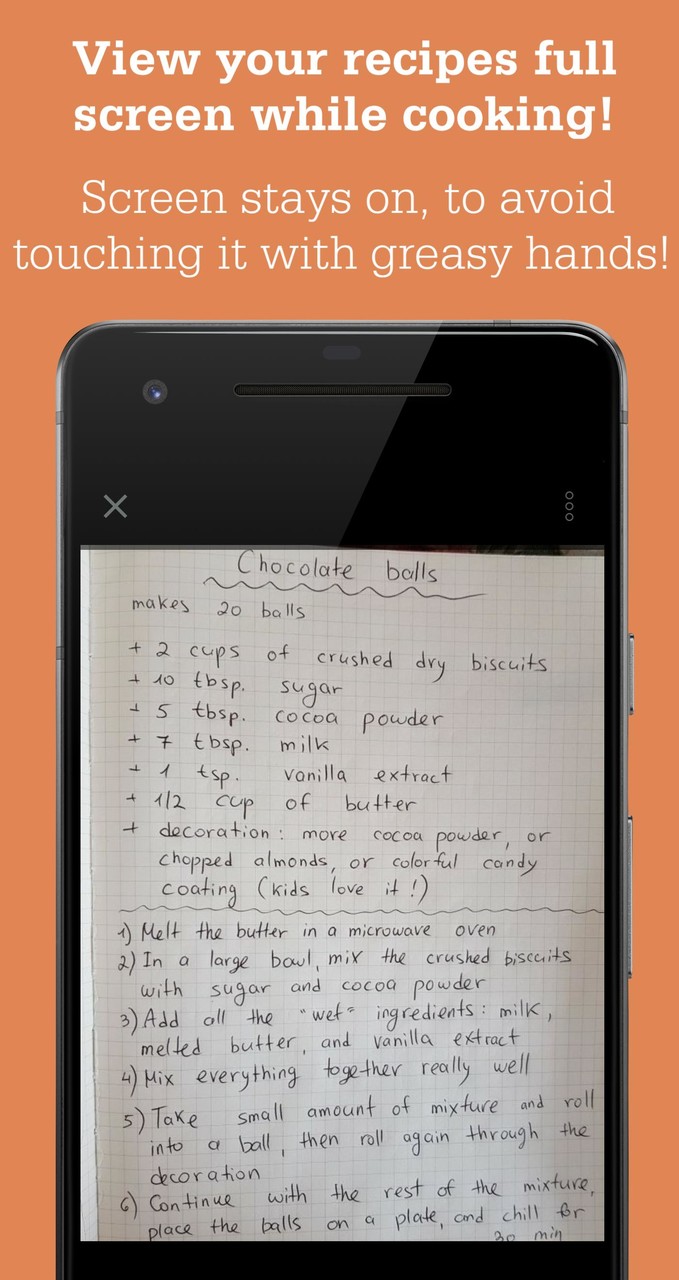 View your recipes full
screen while cooking!
Screen stays on, to avoid
touching it with greasy hands!
Chocolate balls
makes 20 balls
+ 2 cups of crushed dry biscuits
+ 10 tbsp. sugar
+ 5 tbsp. cocoa powder
+ 7 tbsp. milk
+ 1 tsp. vanilla extract
+ 1/2 cup of butter
+ decoration: more cocoa powder, or
chopped almonds, or colorful candy
coating (kids love it!)
1) Melt the butter in a microwave oven
2) In a large bowl, mix the crushed biscuits
with sugar and cocoa powder
3) Add all the "wet" ingredients: milk,
melted butter, and vanilla extract
4) Mix everything together really well
5) Take small amount of mixture and roll
into a ball, then roll again through the
decoration
6) Continue with the rest of the mixture,
place the balls on a plate, and chill for
30 min